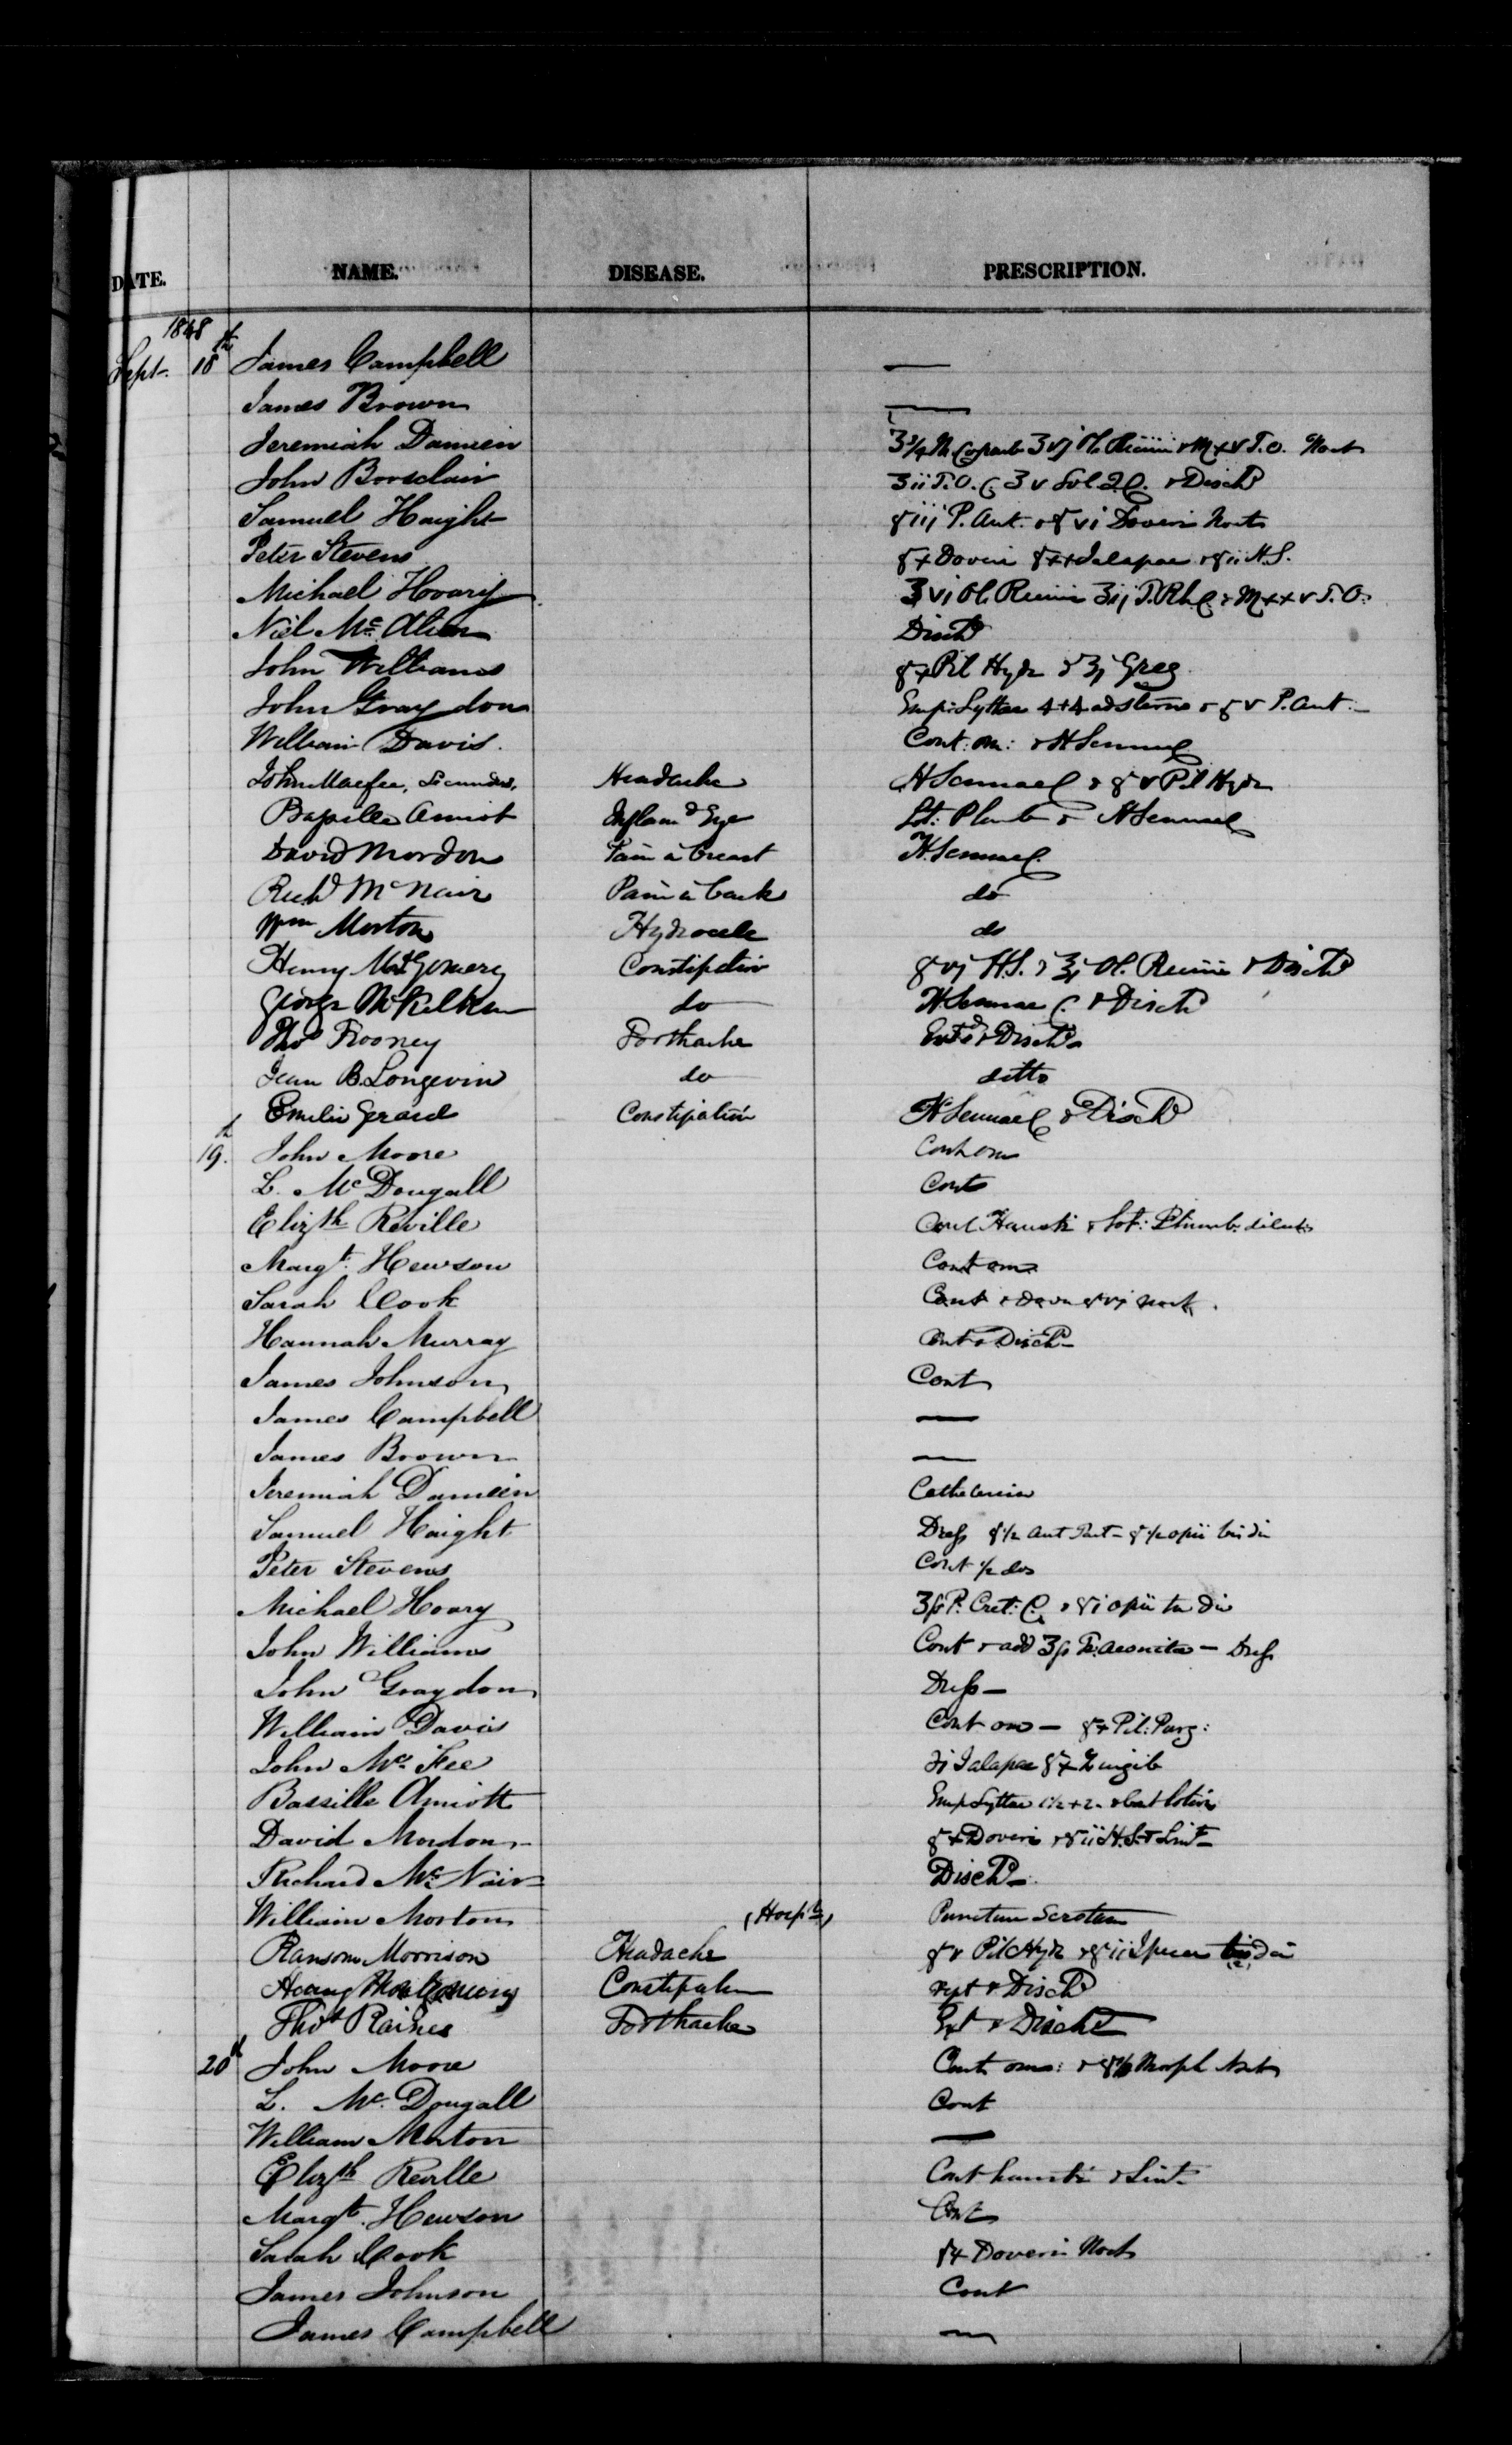 DATE. NAME. DISEASE. PRESCRIPTION.
1848
Sept. 18th James Campbell —
James Brown —
Jeremiah Damien Noct
John Borsclair & Dischd
Samuel Haight P. Ant. & gr vi Doveri Noct
Peter Stevens gr x Doveri gr xx Jalapae & gr ii H.S.
Michael Hoary ʒvi Ol. Ricini
Niel Mc Dischd
John Williams gr x Pil Hyd &
John Graydon Emp: Lyttae 4+4 ad sterno & gr v P. Ant. —
William Davis. Cont. om: & H Sennae C
John Macfee, Secundus, Headache H Sennae C & gr v Pil Hydr
Amiot Inflamd Eye Lot: Plumb & H Sennae C
David Mordon Pain in breast H. Sennae C.
Richd McNair Pain in back do
Wm Morton Hydrocele do
Henry Montgomery Constipation gr vj H.S. & ʒj Ol. Ricini & Dischd
George Constipation do H Sennae C. & Dischd
Thos Rooney Toothache Extd & Dischd
Jean B. Longevin do ditto
Emelie Gerard Constipation H Sennae C & Dischd
19th John Moore Cont om
L. McDougall Cont
Elizth Reville Cont Hausti & Lot: Plumb. dilut:
Margt. Hewson Cont om
Sarah Cook Cont & Dover gr vj noct.
Hannah Murray Cont & Dischd —
James Johnson Cont
James Campbell —
James Brown —
Jeremiah Damien
Samuel Haight Dress gr ½ Ant Tart — gr ½ opii
Peter Stevens Cont ½ dos
Michael Hoary ʒß P. Cret: C. & gr i opii ter die
John Williams Cont & add ʒß Tr. aconite — Dress
John Graydon Dress —
William Davis Cont om — gr x Pil: Purg:
John Mc Fee Jalapae gr x Zingib
Bassille Amiott Emp Lyttae 1½ + 2 & Cont lotion
David Mordon gr x Doveri & gr ii H.S. & Lint —
Richard Mc Nair Dischd —
William Morton (Hospl) Puncture Scrotum
Ransom Morrison Headache gr v Pil Hyd & gr ii Ipecac
Henry Montgomery Constipation rept & Dischd
Thos Raines Toothache Ext & Dischd
20th John Moore Cont om: & Morph Noct
L. Mc. Dougall Cont
William Morton —
Elizth Reville Cont hausti & Lint —
Margt. Hewson Cont
Sarah Cook gr x Doveri Noct
James Johnson Cont
James Campbell —